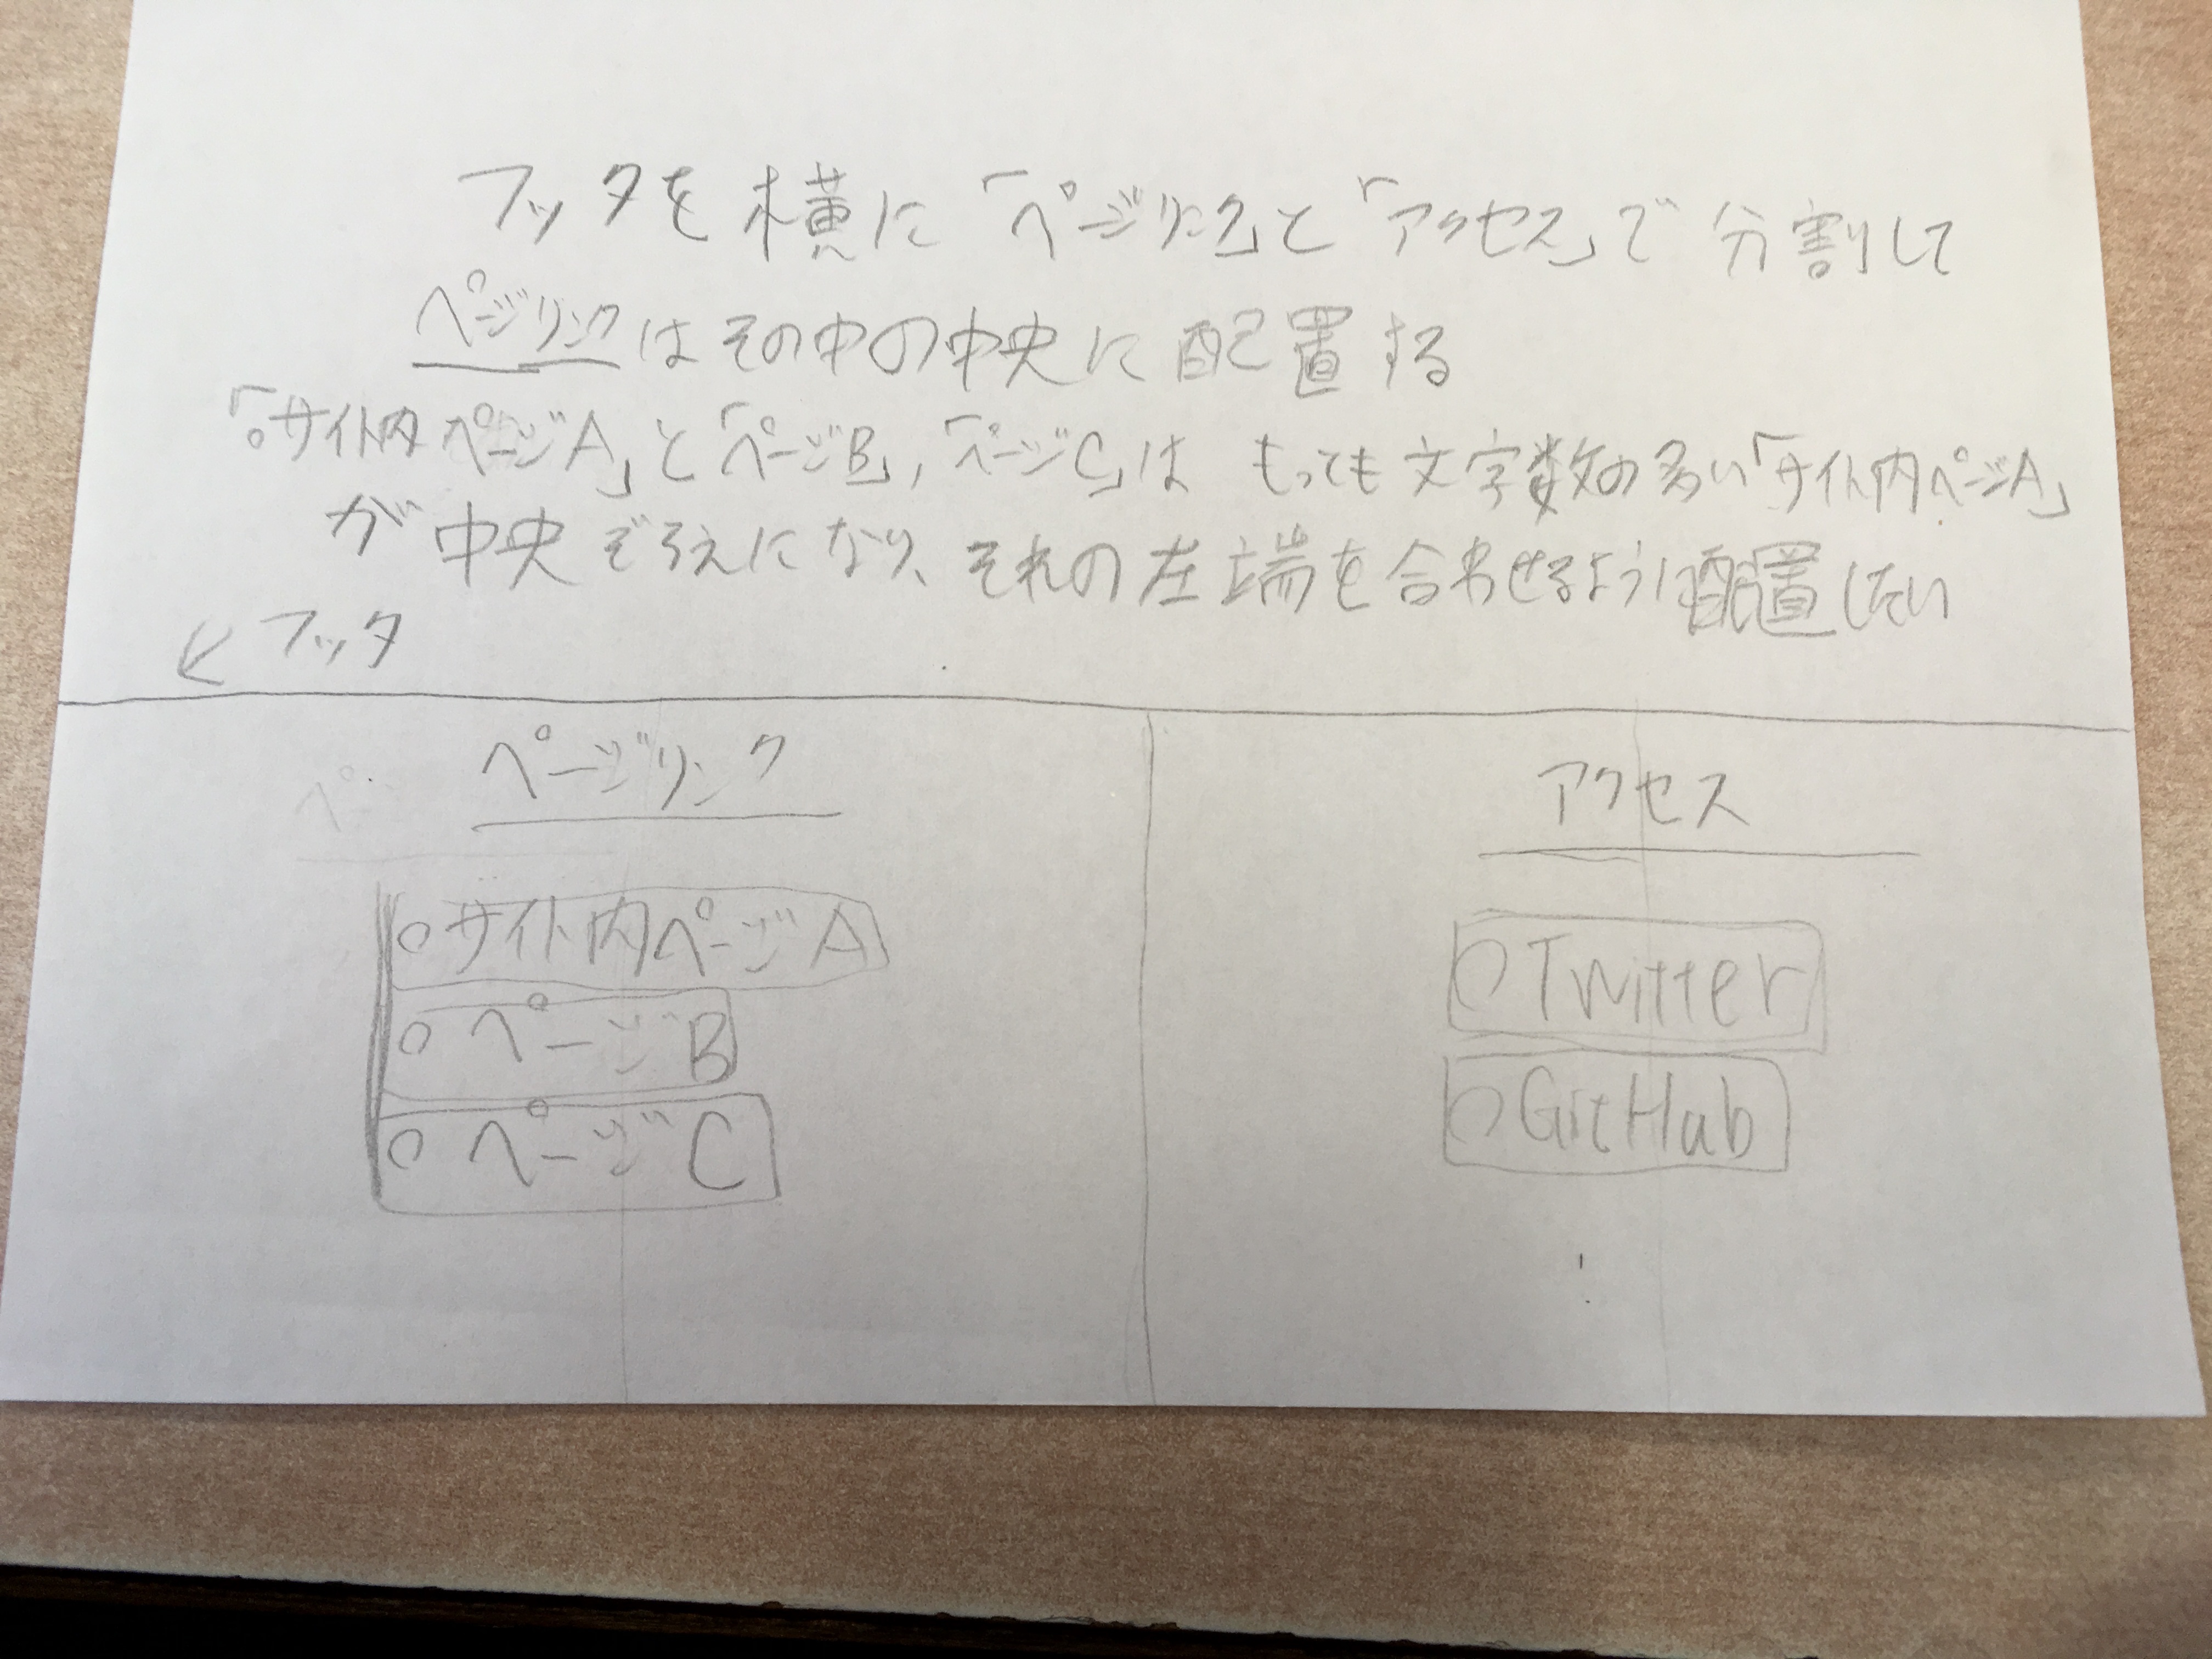 フッタを横に「ページリンク」と「アクセス」で分割して
ページリンクはその中の中央に配置する
「○サイト内ページA」と「ページB」,「ページC」は もっても文字数の多い「サイト内ページA」
が中央ぞろえになり、それの左端を合わせるように配置したい
フッタ
ペー
ページリンク
○サイト内ページA
○ページB
○ページC
アクセス
○Twitter
○GitHub